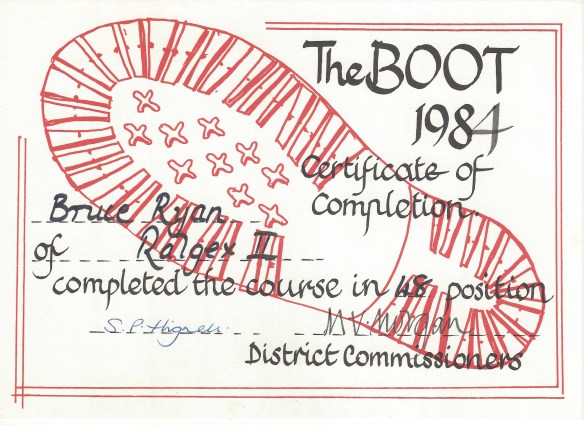 The BOOT
1984
Certificate of
Completion.
Bruce Ryan
of Ralgex II
completed the course in 48 position
S.P.
District Commissioners